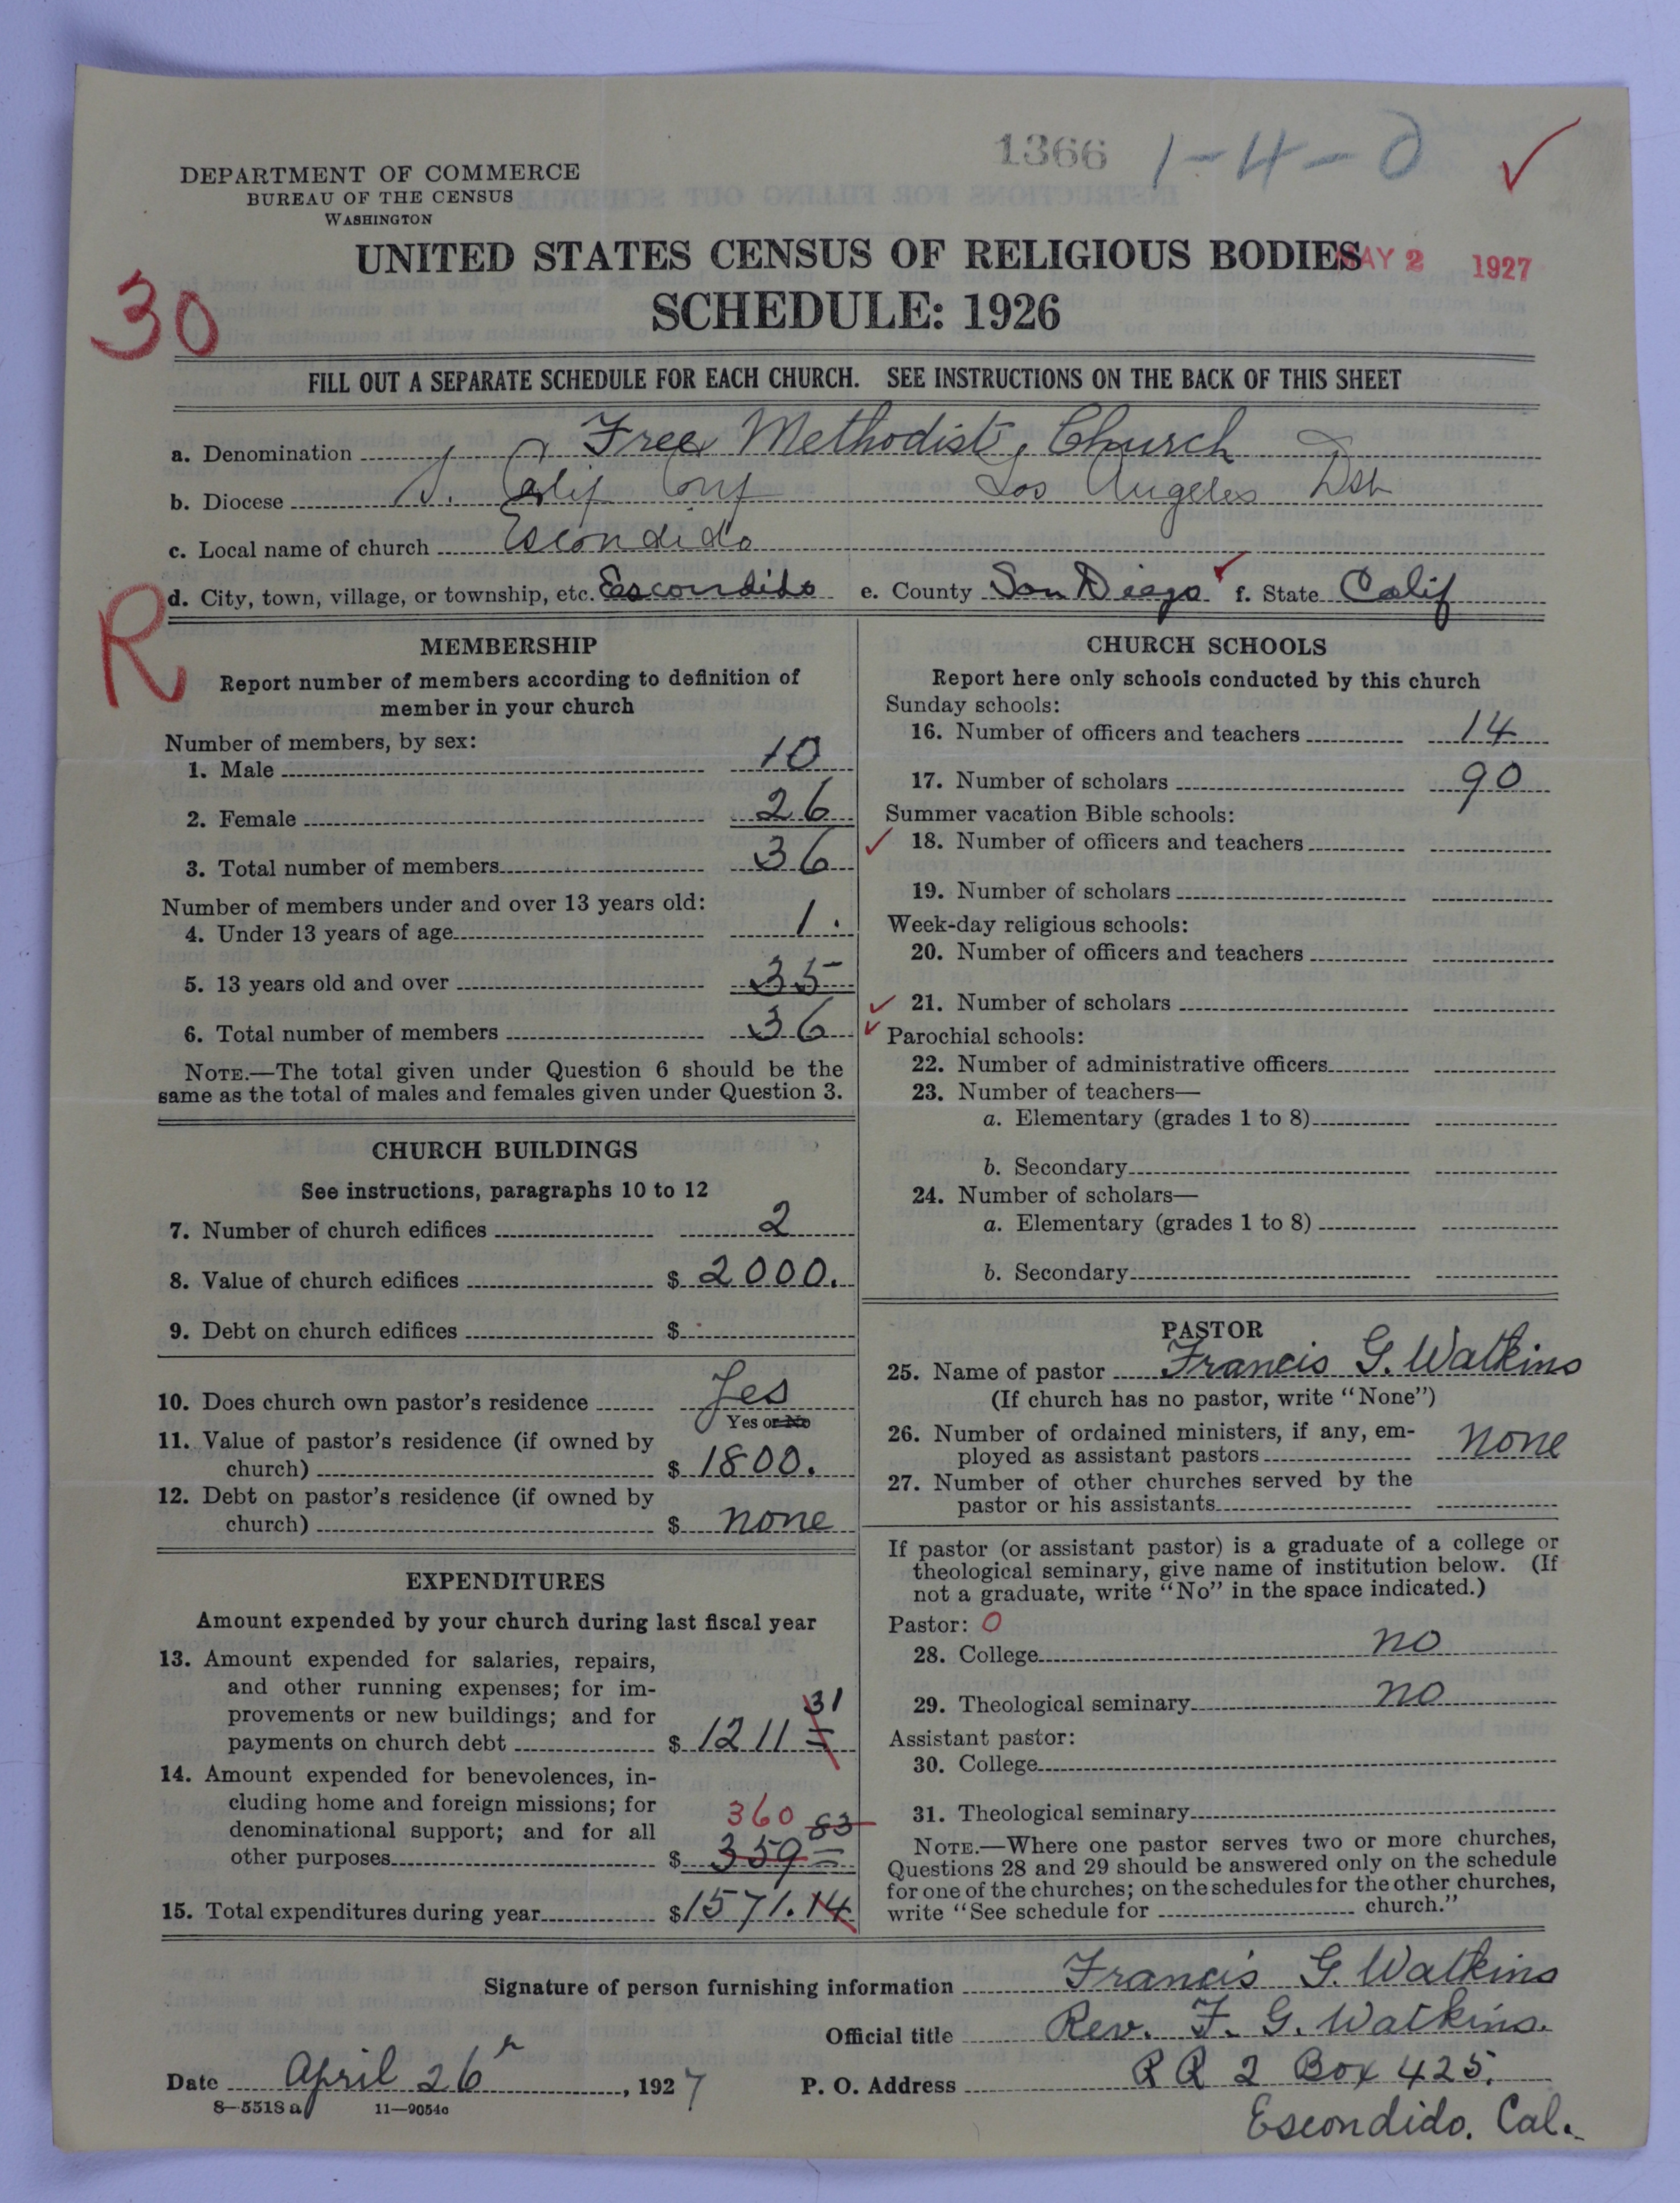 1366 1-4-0
DEPARTMENT OF COMMERCE
BUREAU OF THE CENSUS
WASHINGTON
UNITED STATES CENSUS OF RELIGIOUS BODIES
MAY 2 1927
SCHEDULE: 1926
30
FILL OUT A SEPARATE SCHEDULE FOR EACH CHURCH. SEE INSTRUCTIONS ON THE BACK OF THIS SHEET
a. Denomination Free Methodist Church
b. Diocese S. Calif Conf Los Angeles Dst
c. Local name of church Escondido
d. City, town, village, or township, etc. Escondido e. County San Diego f. State Calif
R
MEMBERSHIP
Report number of members according to definition of
member in your church
Number of members, by sex:
1. Male 10
2. Female 26
3. Total number of members 36
Number of members under and over 13 years old:
4. Under 13 years of age 1.
5. 13 years old and over 35
6. Total number of members 36
NOTE.—The total given under Question 6 should be the
same as the total of males and females given under Question 3.
CHURCH BUILDINGS
See instructions, paragraphs 10 to 12
7. Number of church edifices 2
8. Value of church edifices $ 2000.
9. Debt on church edifices $
10. Does church own pastor's residence Yes
Yes or No
11. Value of pastor's residence (if owned by
church) $ 1800.
12. Debt on pastor's residence (if owned by
church) $ none
EXPENDITURES
Amount expended by your church during last fiscal year
13. Amount expended for salaries, repairs,
and other running expenses; for im-
provements or new buildings; and for
payments on church debt $ 1211 31
14. Amount expended for benevolences, in-
cluding home and foreign missions; for
denominational support; and for all
360
other purposes $ 359 83
15. Total expenditures during year $1571.14
CHURCH SCHOOLS
Report here only schools conducted by this church
Sunday schools:
16. Number of officers and teachers 14
17. Number of scholars 90
Summer vacation Bible schools:
18. Number of officers and teachers
19. Number of scholars
Week-day religious schools:
20. Number of officers and teachers
21. Number of scholars
Parochial schools:
22. Number of administrative officers
23. Number of teachers—
a. Elementary (grades 1 to 8)
b. Secondary
24. Number of scholars—
a. Elementary (grades 1 to 8)
b. Secondary
PASTOR
25. Name of pastor Francis G. Watkins
(If church has no pastor, write "None")
26. Number of ordained ministers, if any, em-
ployed as assistant pastors none
27. Number of other churches served by the
pastor or his assistants
If pastor (or assistant pastor) is a graduate of a college or
theological seminary, give name of institution below. (If
not a graduate, write "No" in the space indicated.)
Pastor: 0
28. College no
29. Theological seminary no
Assistant pastor:
30. College
31. Theological seminary
NOTE.—Where one pastor serves two or more churches,
Questions 28 and 29 should be answered only on the schedule
for one of the churches; on the schedules for the other churches,
write "See schedule for church."
Signature of person furnishing information Francis G. Watkins
Official title Rev. F. G. Watkins.
Date April 26th, 1927 P. O. Address RR 2 Box 425.
8—5518a 11—9054a
Escondido. Cal.